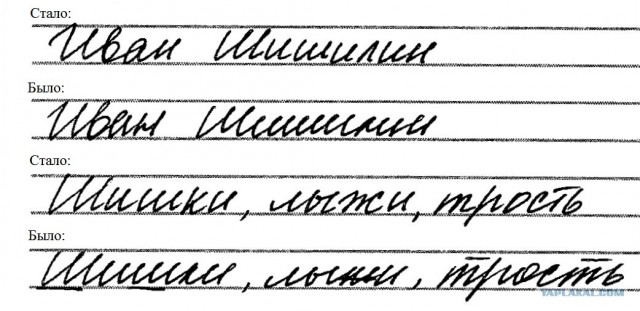 Стало:
Иван Шишилин
Было:
Иван Шишилин
Стало:
Шишки, лыжи, трость
Было:
Шишки, лыжи, трость
YAPLAKAL.COM